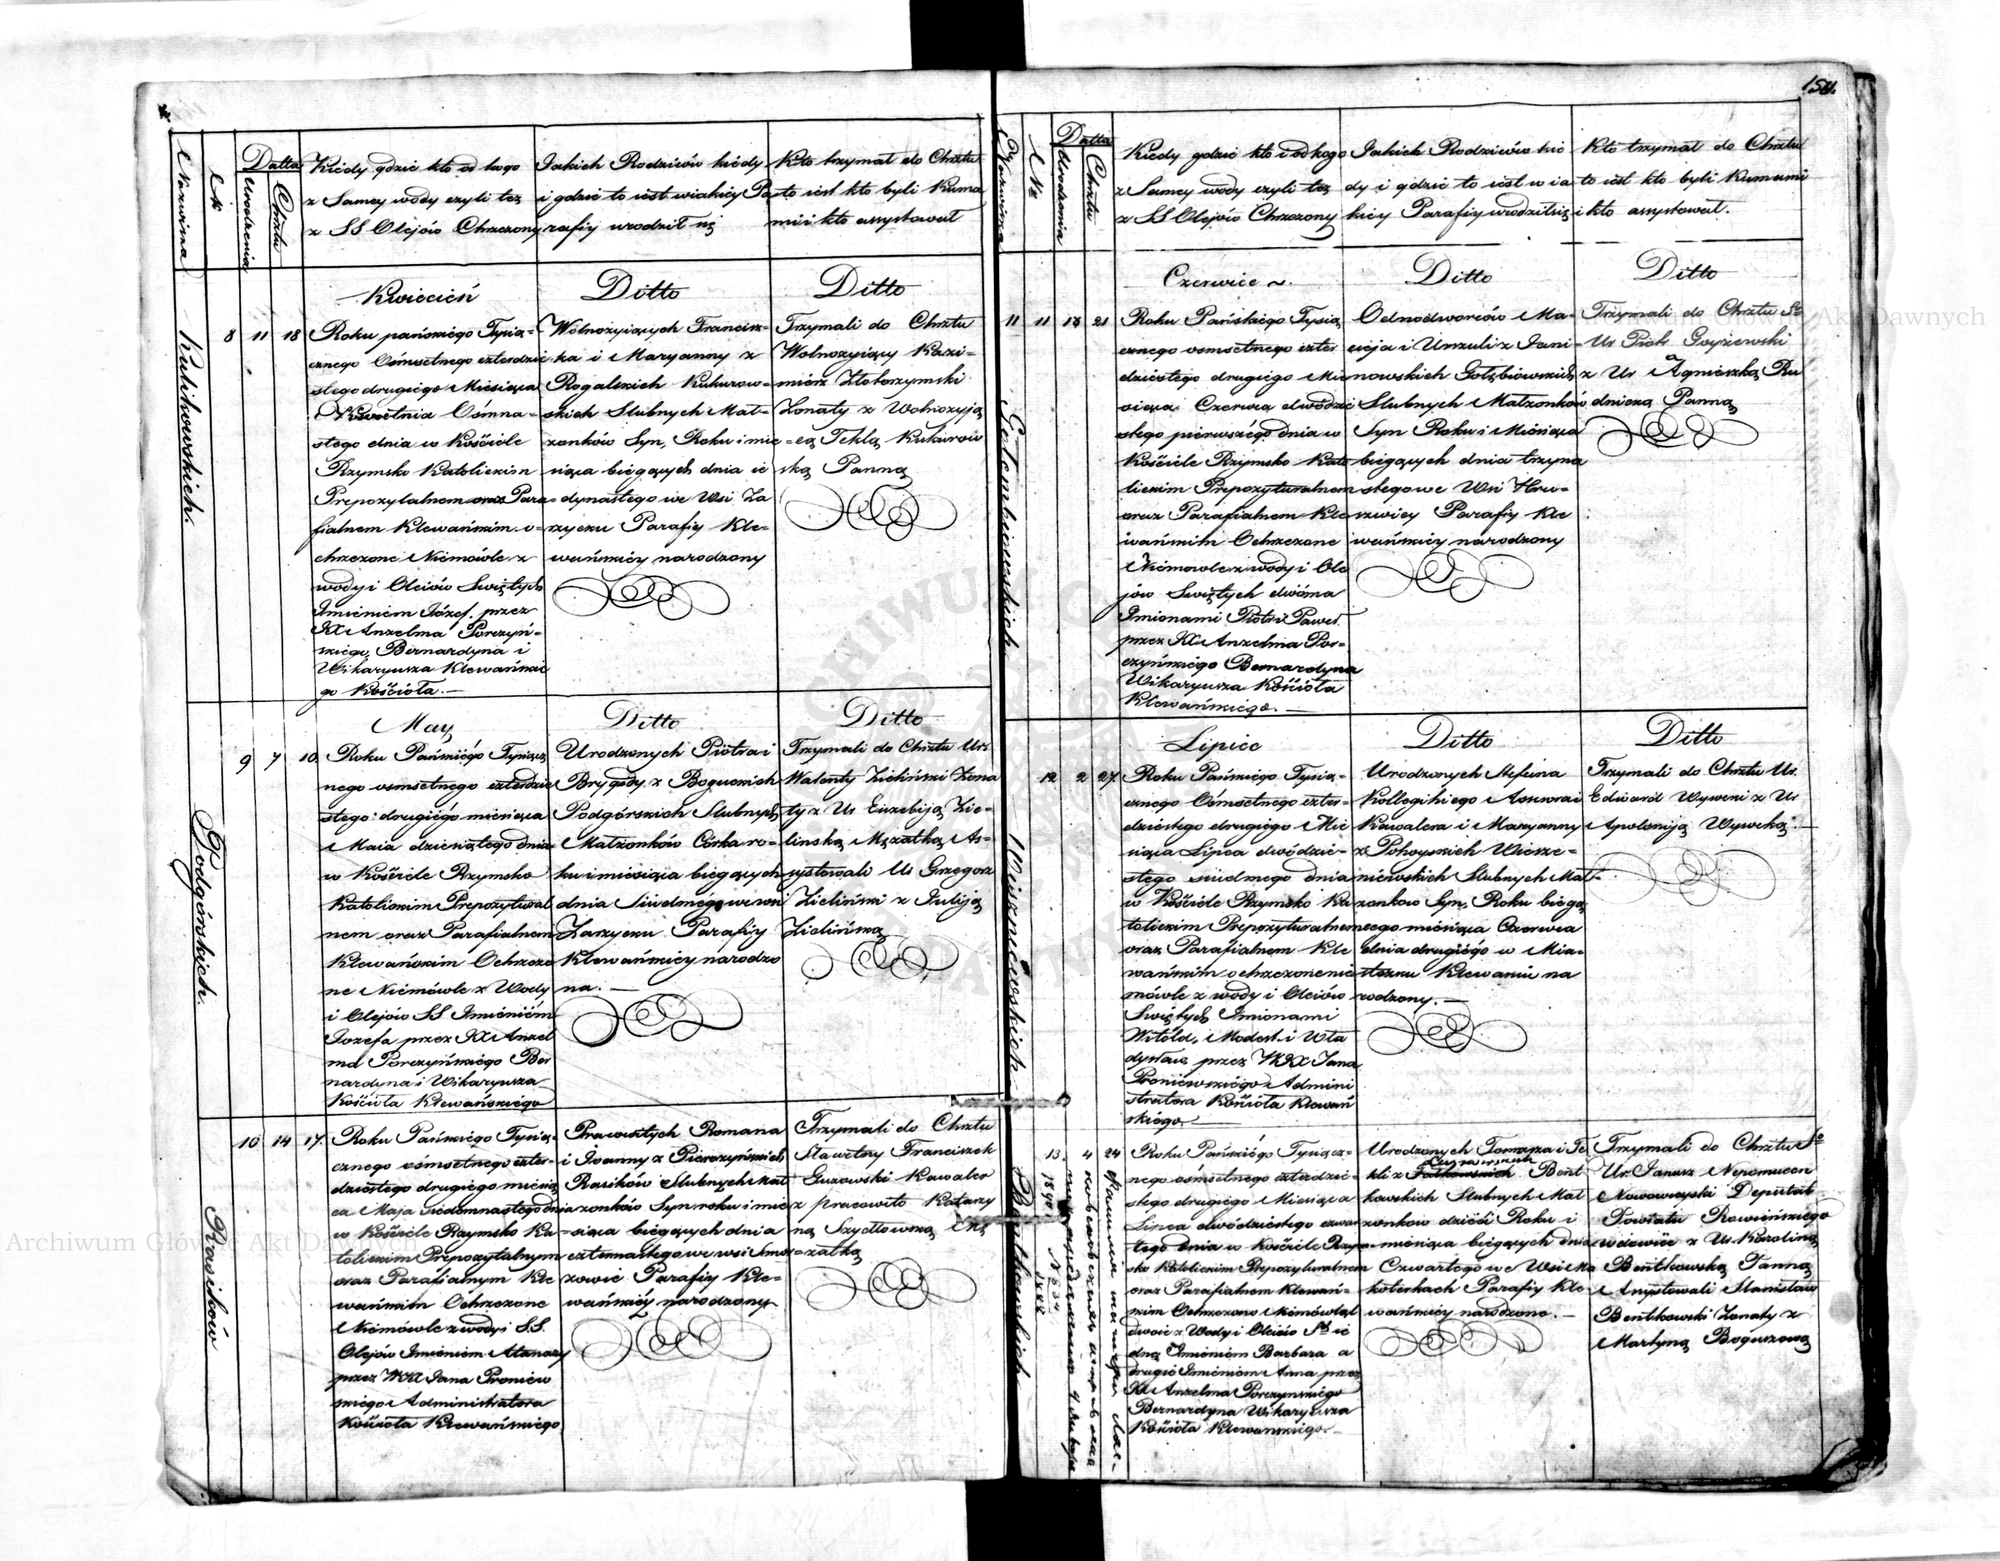 154.
Nazwiska
№
Datta
Urodzenia
Chrztu
Kiedy gdzie kto od kogo
z Samey wody czyli też
z SS Olejów Chrzczony
Jakich Rodziców kiedy
i gdzie to iest wiakiey Pa
rafiy urodził się
Kto trzymał do Chrztu
to iest kto byli Kuma
mi i kto assystował
Kulikowskich.
8 11 18
Kwiecień
Roku pańskiego Tysią-
cznego Ośmsetnego czterdzie
stego drugiego Miesiąca
Kwietnia Ośmna-
stego dnia w Kościele
Rzymsko Katolickim
Prepozytalnem oraz Para-
fialnem Klewańskim o-
chrzczone Niemówle z
wody i Oleiów Swiętych
Imieniem Józef. przez
JX Anzelma Porczyń-
skiego, Bernardyna i
Wikaryusza Klewańskie
go Kościoła.—
Ditto
Wolnożyiących Francisz-
ka i Maryanny z
Rogalskich Kukurow-
skich Slubnych Mał-
żonków Syn, Roku i mie-
siąca bieżących dnia ie
dynastego we Wsi Za
rzycku Parafiy Kle-
wańskiey narodzony
Ditto
Trzymali do Chrztu
Wolnożyiący Kazi-
mierz Złotorzymski
Zonaty z Wolnożyją
cą Teklą Kukurow
ską Panną
Podgórskich.
9 7 10
May
Roku Pańskiégo Tysiącz
nego osmsetnego czterdzie
stego drugiégo miesiąca
Maia dziesiątego dnia
w Kościele Rzymsko
Katolickim Prepozytural
nem oraz Parafialnem
Klewańskim Ochrzczo
ne Niemówle z Wody
i Olejów SS Imieniem
Jozefa przez JX Anzel
ma Porczyńskiégo Ber
nardyna i Wikaryusza
Kościoła Klewańskiégo
Ditto
Urodzonych Piotra i
Brygidy z Boguckich
Podgórskich Slubnych
Małżonków Córka ro-
ku i miesiąca bieżących
dnia Siódmego we wsi
Zarzycku Parafiy
Klewańskiey narodzo
na.—
Ditto
Trzymali do Chrztu Ur.
Walenty Zieliński Zona
ty z Ur Euzebiją Zie-
linską Mężatką As-
systowali Ur Grzegorz
Zieliński z Juliją
Zielińską
Rasików
10 14 17
Roku Pańskiego Tysią-
cznego ośmsetnego czter-
dziestego drugiego miesią
ca Maja siedemnastego dnia
w Kościele Rzymsko Ka-
tolickim Prepozytalnym
oraz Parafialnym Kle
wańskim Ochrzczone
Niemówle z wody i S.S.
Olejów Imieniem Atanazy
przez WJX Jana Proniew
skiégo Administratora
Kościoła Klewańskiégo
Prawowitych Romana
i Joanny z Pierczyńskich
Rasików Slubnych Mał
zonków Syn roku i mie
siąca bieżących dnia
czternastego we wsi
Parafiy Kle-
wańskiéy narodzony
Trzymali do Chrztu
Sławetny Franciszek
Guzowski Kawaler
z pracowitą Katarzy
ną Szydłowską Mę
żatką
Nazwiska
№
Datta
Urodzenia
Chrztu
Kiedy gdzie kto i od kogo
z Samey wody czyli też
z SS Olejów Chrzczony
Jakich Rodziców kie
dy i gdzie to iest w ia
kiey Parafiy urodził się
Kto trzymał do Chrztu
to iest kto byli Kumami
i kto assystował.
Gołembiewskich
11 11 13 21
Czerwiec
Roku Pańskiego Tysią
cznego osmsetnego czter
dziestego drugiego Mie
siąca Czerwca dwódzie
stego pierwszégo dnia w
Kościele Rzymsko Kato
lickim Prepozyturalnem
oraz Parafialnem Kle
wańskim Ochrzczone
Niemowle z wody i Ole
jów Swiętych dwóma
Imionami Piotr i Paweł
przez JX Anzelma Por-
czyńskiégo Bernardyna
Wikaryusza Kościoła
Klewańskiego.—
Ditto
Odnodworców Ma-
cieja i Urszuli z Jani-
nowskich Gołębiowskich
Slubnych Małżonków
Syn Roku i Miesiąca
bieżących dnia trzyna
stego we Wsi Hru-
szwicy Parafiy Kle
wańskiey narodzony
Ditto
Trzymali do Chrztu Sgo
Ur Piotr Gryżewski
z Ur Agnieszką Ru
dnicką Panną
Wiszniewskich
12 2 27
Lipiec
Roku Pańskiego Tysią-
cznego Ośmsetnego czter-
dziestego drugiego Mie
siąca Lipca dwódzie-
stego siódmego dnia
w Kościele Rzymsko Ka
tolickim Prepozyturalnem
oraz Parafialnem Kle
wańskim ochrzczone nie
mówle z wody i Oleiów
Swiętych Imionami
Witold, Modest i Wła
dysław przez WJX Jana
Proniewskiégo Admini
stratora Kościoła Klewań
skiégo
Ditto
Urodzonych Stefana
Kollegihiego Assesora i
Kawalera i Maryanny
z Pohoyskich Wiszc-
niewskich Slubnych Mał-
zonkow Syn, Roku bieżą
cego miésiąca Czerwca
dnia drugiégo w Mia-
steczku Klewaniu na
rodzony.—
Ditto
Trzymali do Chrztu Ur.
Edward Wyweni z Ur
Apoloniją Wywcką.—
Bentkowskich
13. 4 24
Roku Pańskiégo Tysiącz-
nego ośmsetnego czterdzie-
stego drugiego Miesiąca
Lipca dwódziestego czwar
tego dnia w Kościele Rzym
sko Katolickim Prepozyturalnem
oraz Parafialnem Klewań-
skim Ochrzczono Niemówląt
dwoie z Wody i Oleiów Sch ie
dną Imieniem Barbara a
drugie Imieniem Anna przez
JX Anzelma Porczynskiego
Bernardyna Wikaryusza
Kościoła Klewańskiego.—
Urodzonych Tomasza i Te
kli z Falkowskich Bent-
kowskich Slubnych Mał
zonkow dzieci Roku i
miesiąca bieżących dnia
Czwartego we Wsi
Parafiy Kle
wańskiey narodzone.—
Trzymali do Chrztu Sgo
Ur. Janusz Neromucen
Nowowieyski Deputat
Powiatu Rowieńskiégo
wdowiec z Ur. Karoliną
Bentkowską Panną
Assystowali Stanisław
Bentkowski Zonaty z
Martyną Boguszową
Archiwum Główne Akt Dawnych
Archiwum Główne Akt Dawnych